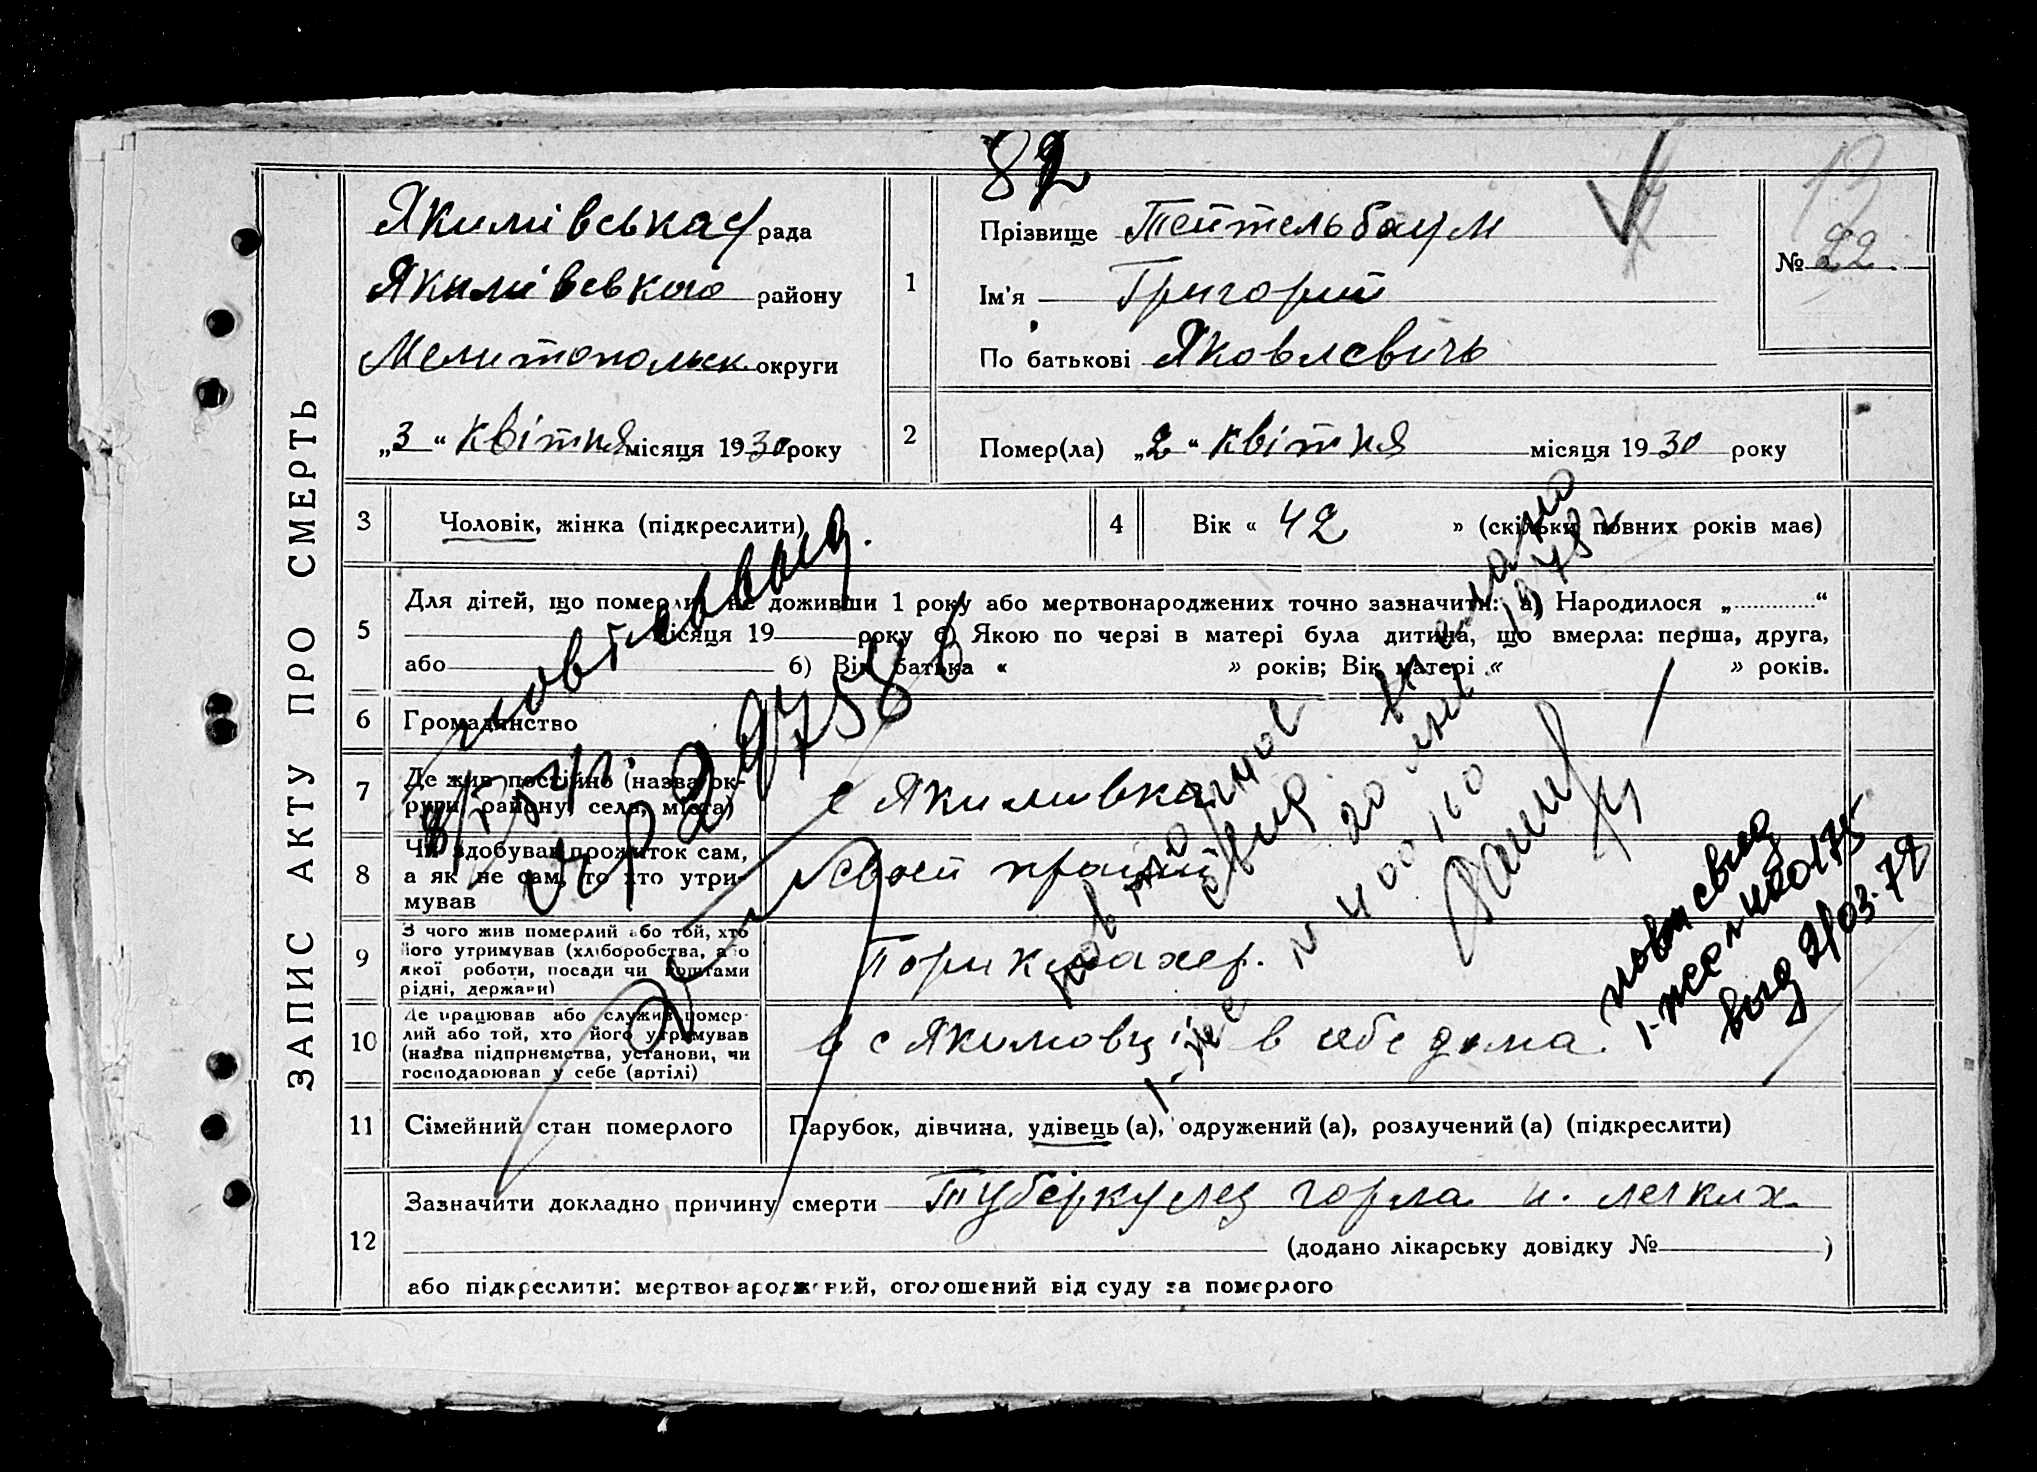 82
13
ЗАПИС АКТУ ПРО СМЕРТЬ
Якимівська с/рада
Якимівського району
Мелитопольськ. округи
„3“ квітня місяця 1930 року
1
Прізвище Тейтельбаум
Ім'я Григорий
По батькові Яковлевичь
№ 22
2 Помер(ла) „2“ квітня місяця 1930 року
3 Чоловік, жінка (підкреслити)
4 Вік « 42 » (скільки повних років має)
5 Для дітей, що померли не доживши 1 року або мертвонароджених точно зазначити: а) Народилося „ “
місяця 19 року б) Якою по черзі в матері була дитина, що вмерла: перша, друга,
або б) Вік батька « » років; Вік матері « » років.
6 Громадянство
7 Де жив постійно (назва ок-
руги, району, села, міста)
с Якимивка
8 Чи здобував прожиток сам,
а як не сам, то хто утри-
мував
своей праций
9 З чого жив померлий або той, хто
його утримував (хліборобства, або
якої роботи, посади чи коштами
рідні, держави)
Парикмахер.
10 Де працював або служив помер-
лий або той, хто його утримував
(назва підприємства, установи, чи
господарював у себе (артілі)
в с Якимовці в себе дома.
11 Сімейний стан померлого
Парубок, дівчина, удівець (а), одружений (а), розлучений (а) (підкреслити)
12 Зазначити докладно причину смерти Туберкулез горла и легких
(додано лікарську довідку № )
або підкреслити: мертвонароджений, оголошений від суду за померлого
повт свид
выд 2/03.72
повторное
свид. выслано
20 1948 г
1-ЖС № 400110